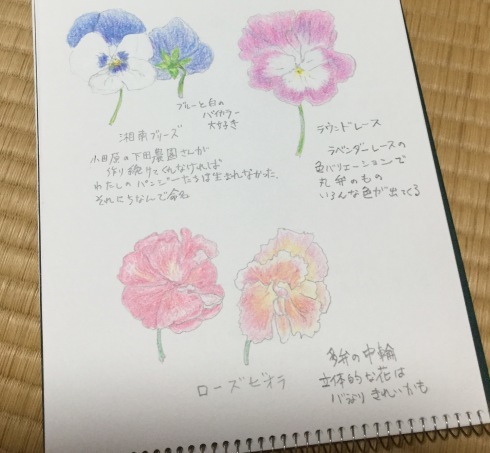 ブルーと白の
バイカラー
大好き
湘南ブリーズ
小田原の下田農園さんが
作り続けてくれなければ
わたしのパンジーたちは生まれなかった、
それにちなんで命名
ラウンドレース
ラベンダーレースの
色バリエーションで
丸弁のもの
いろんな色が出てくる
ローズビオラ
多弁の中輪
立体的な花は
きれいかも